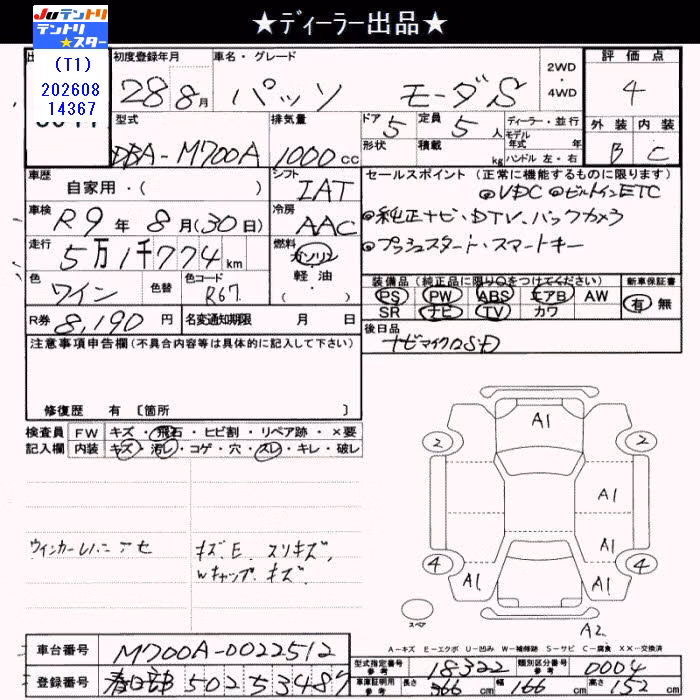 ★ディーラー出品★
JUテントリ
テントリ★スター
(T1)
202608
14367
初度登録年月 車名・グレード 2WD・4WD 評価点
28年 8月 パッソ モーダS 4
型式 排気量 ドア 定員 ディーラー・並行
DBA-M700A 1000cc 5 5人 モデル年式 年
形状 積載 kg ハンドル 左・右
外装 内装
B C
車歴 自家用・( )
シフト IAT
車検 R9年 8月(30日)
冷房 AAC
走行 5万1千774km
燃料 ガソリン 軽油・( )
色 ワイン 色替 色コード R67
R券 8,190円 名変通知期限 月 日
セールスポイント(正常に機能するものに限ります)
◎VDC ◎ビルトインETC
◎純正ナビ・DTV、バックカメラ
◎プッシュスタート・スマートキー
装備品(純正品に限り○をつけてください) 新車保証書
PS PW ABS エアB AW 有 無
SR ナビ TV カワ
後日品
ナビマイクロSD
注意事項申告欄(不具合内容等は具体的に記入して下さい)
修復歴 有 [箇所 ]
検査員 FW キズ・飛石・ヒビ割・リペア跡・×要
記入欄 内装 キズ・汚レ・コゲ・穴・スレ・キレ・破レ
キズ、E、スリキズ、
Wキャップ、キズ、
A1
2 2
A1
A1
4 4
A1 A1
スペア
A2
A-キズ E-エクボ U-凹み W-補修跡 S-サビ C-腐食 XX-交換済
車台番号 M700A-0022512
登録番号 春日部 502 5 3487
型式指定番号参考 18322 類別区分番号参考 0004
車庫証明用参考 長さ 366cm 幅 166cm 高さ 152cm